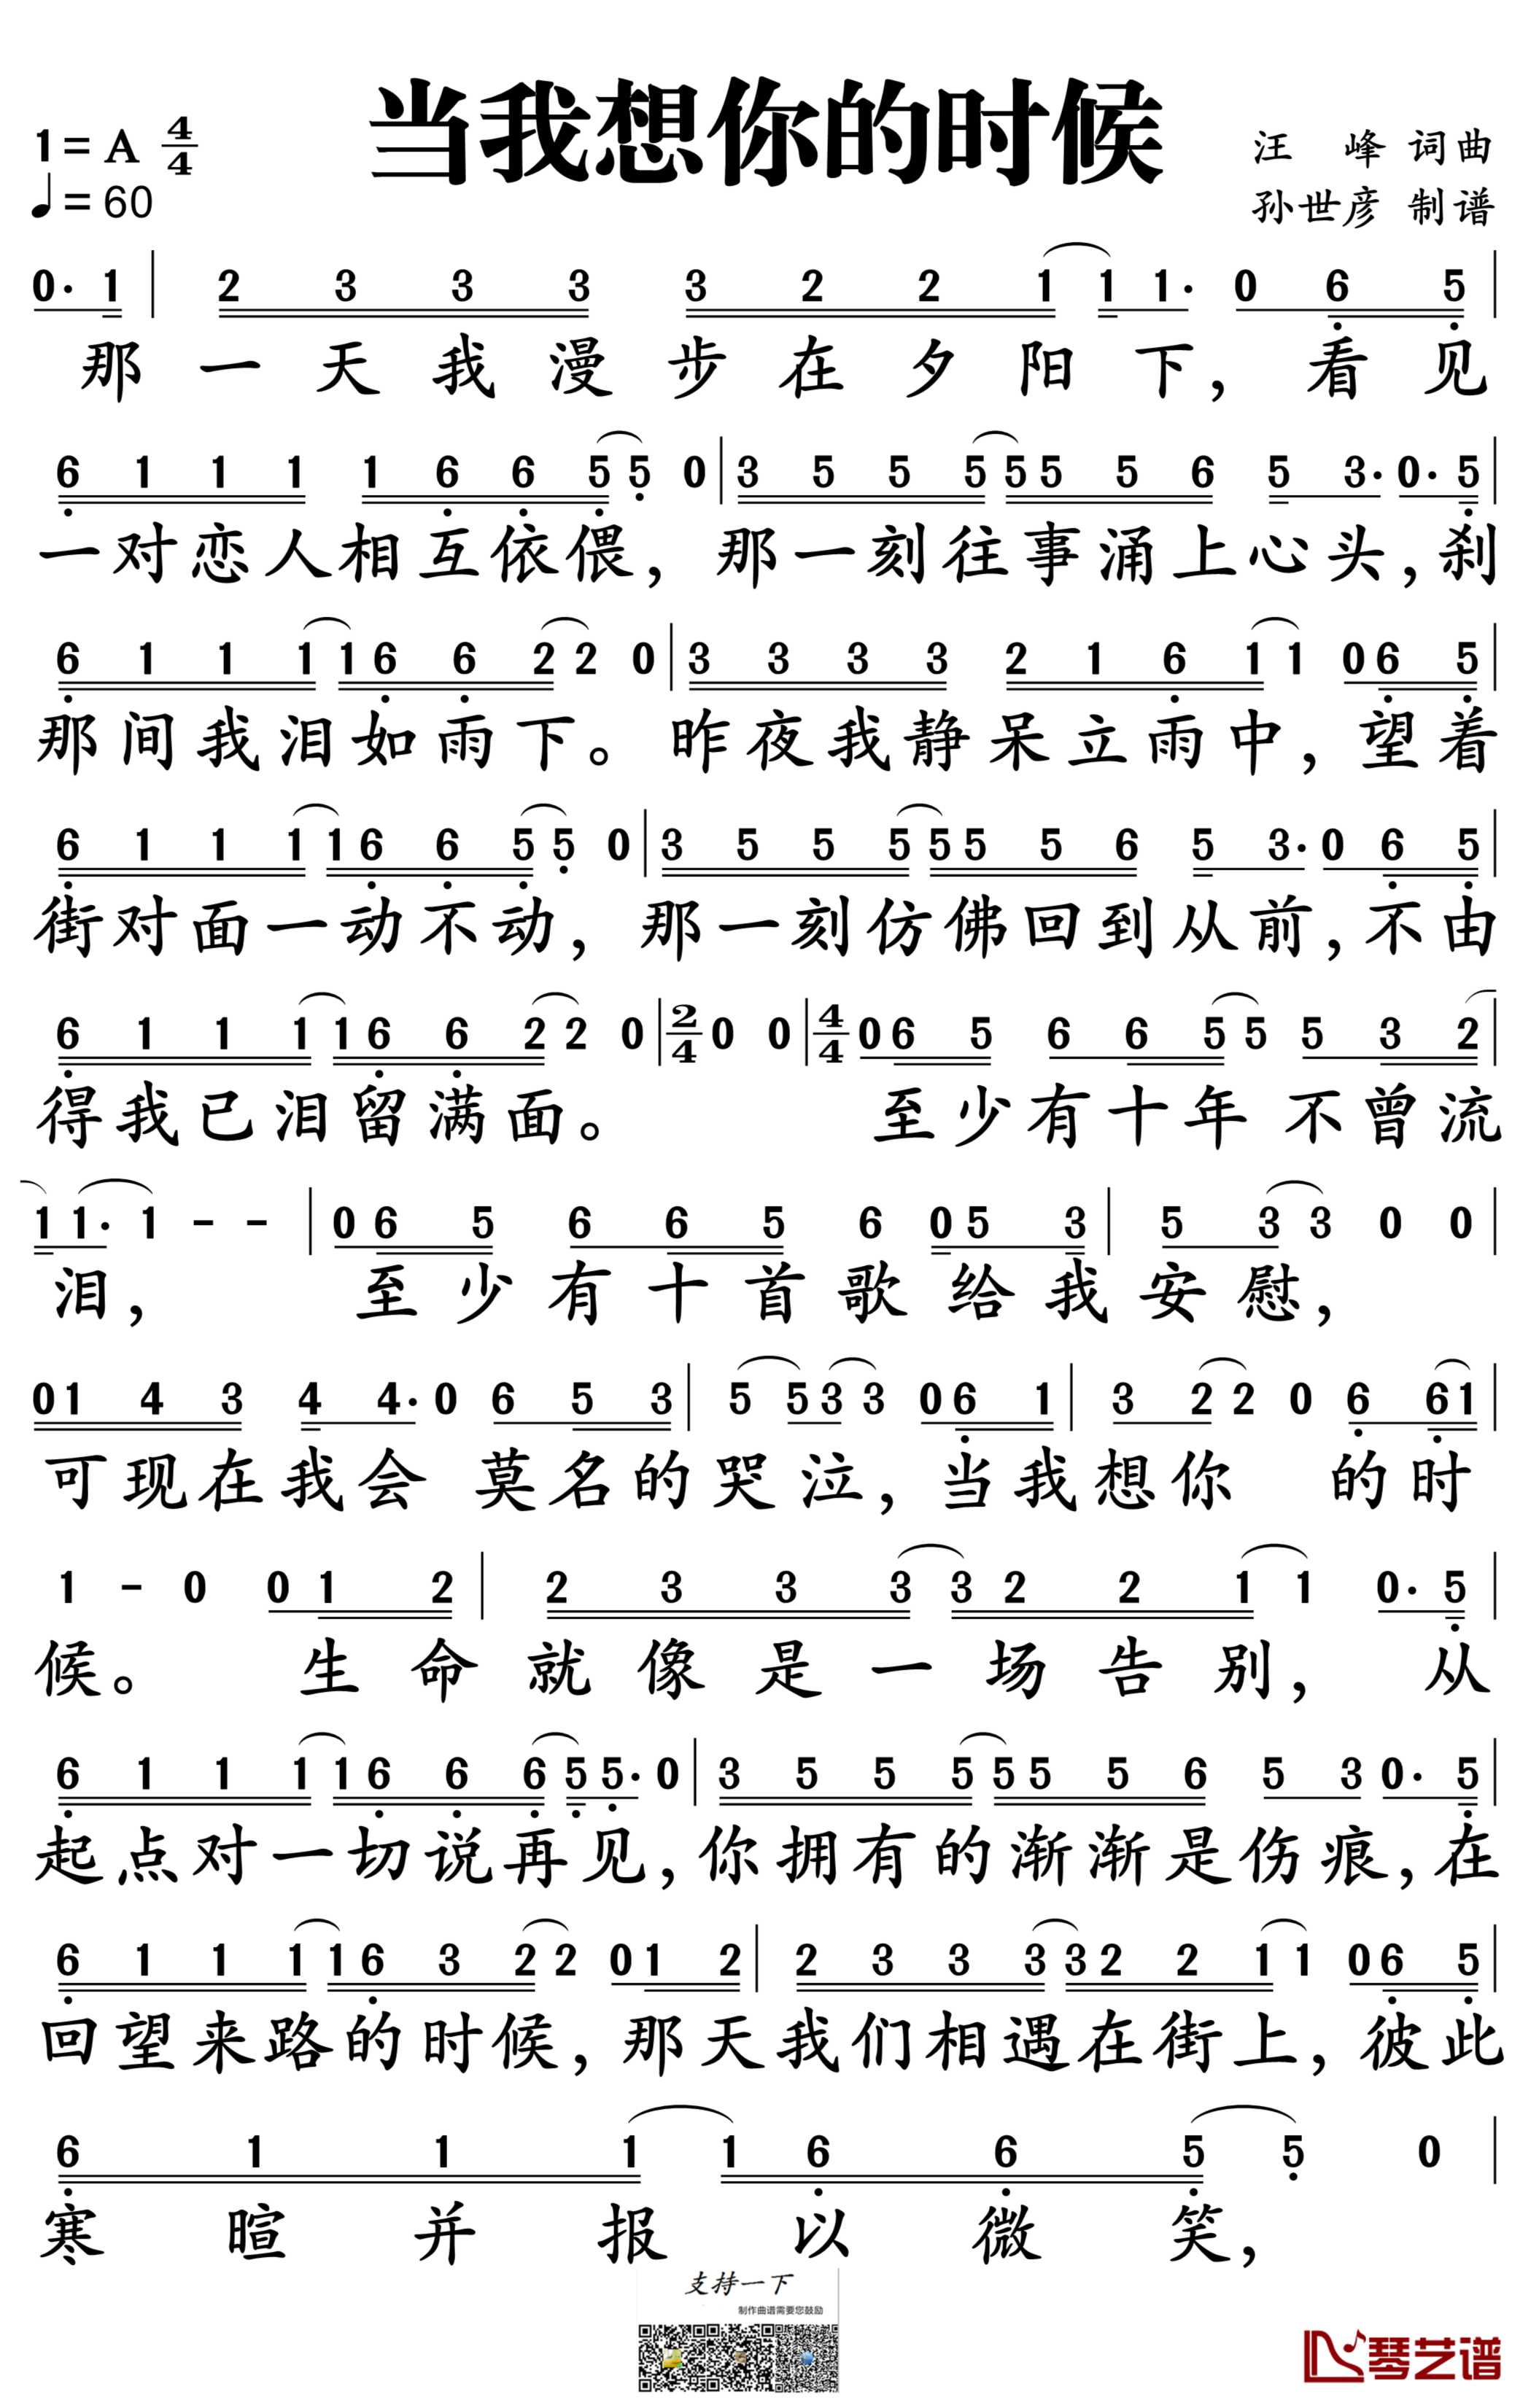 当我想你的时候
1=A 4/4
♩=60
汪 峰 词曲
孙世彦 制谱
0· 1 | 2 3 3 3 3 2 2 1 1 1· 0 6 5 |
那一天我漫步在夕阳下，看见
6 1 1 1 1 6 6 5 5 0 | 3 5 5 5 5 5 5 6 5 3· 0· 5 |
一对恋人相互依偎，那一刻往事涌上心头，刹
6 1 1 1 1 6 6 2 2 0 | 3 3 3 3 2 1 6 1 1 0 6 5 |
那间我泪如雨下。昨夜我静呆立雨中，望着
6 1 1 1 1 6 6 5 5 0 | 3 5 5 5 5 5 5 6 5 3· 0 6 5 |
街对面一动不动，那一刻仿佛回到从前，不由
6 1 1 1 1 6 6 2 2 0 | 2/4 0 0 | 4/4 0 6 5 6 6 5 5 5 3 2 |
得我已泪留满面。 至少有十年 不曾流
1 1· 1 - - | 0 6 5 6 6 5 6 0 5 3 | 5 3 3 0 0 |
泪， 至少有十首歌给我安慰，
0 1 4 3 4 4· 0 6 5 3 | 5 5 3 3 0 6 1 | 3 2 2 0 6 6 1 |
可现在我会 莫名的哭泣，当我想你 的时
1 - 0 0 1 2 | 2 3 3 3 3 2 2 1 1 0· 5 |
候。 生命就像是一场告别， 从
6 1 1 1 1 6 6 6 5 5· 0 | 3 5 5 5 5 5 5 6 5 3 0· 5 |
起点对一切说再见，你拥有的渐渐是伤痕，在
6 1 1 1 1 6 3 2 2 0 1 2 | 2 3 3 3 3 2 2 1 1 0 6 5 |
回望来路的时候，那天我们相遇在街上，彼此
6 1 1 1 1 6 6 5 5 0 |
寒暄并报以微笑，
支持一下
制作曲谱需要您鼓励
琴艺谱